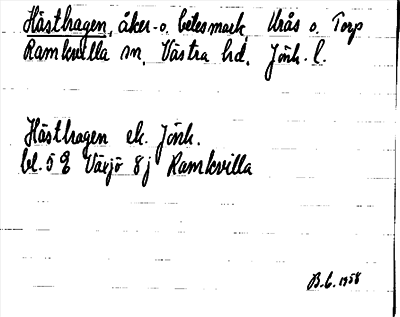 Hästhagen, åker- o. betesmark, Urås o. Torp
Ramkvilla sn, Västra hd, Jönk. l.
Hästhagen ek. Jönk.
bl. 5 E Växjö 8j Ramkvilla
B.E. 1958